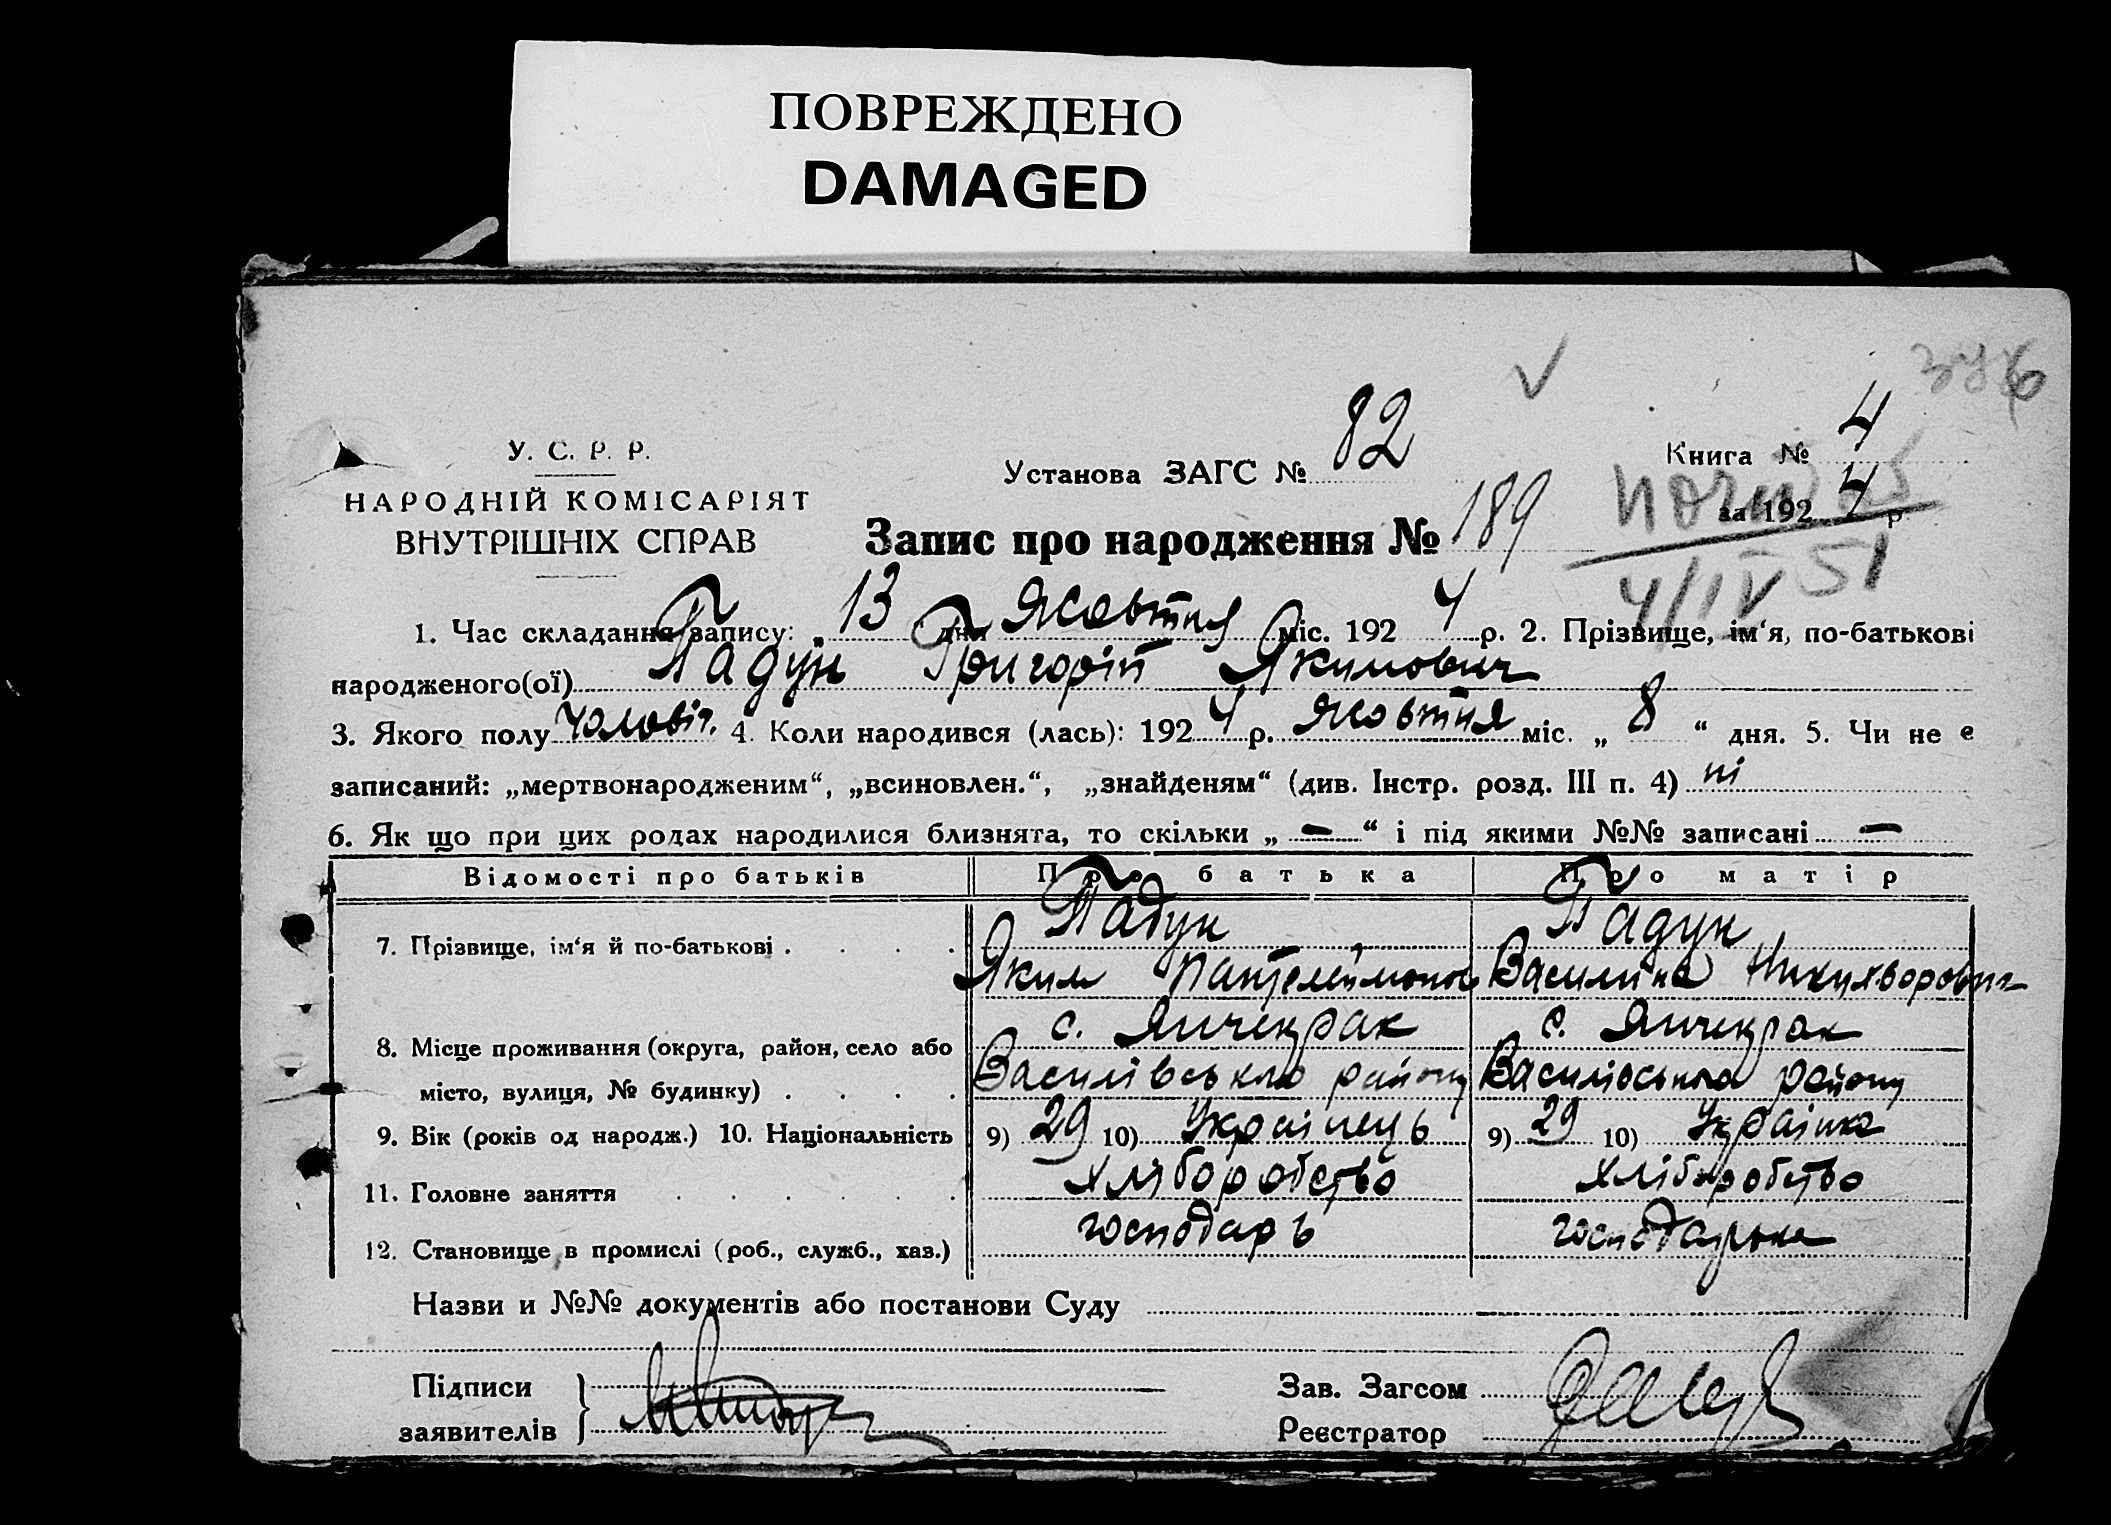 ПОВРЕЖДЕНО
DAMAGED
У. С. Р. Р.
НАРОДНІЙ КОМІСАРІЯТ
ВНУТРІШНІХ СПРАВ
Установа ЗАГС № 82
Книга № 4
за 192 4 р
Запис про народження № 189
4/IV 51
1. Час складання запису: „ 13 дня Жовтня міс. 192 4 р. 2. Прізвище, ім‘я, по-батькові
народженого(ої) Падун Григорій Якимович
3. Якого полу чоловіч. 4. Коли народився (лась): 192 4 р. жовтня міс. „ 8 “ дня. 5. Чи не є
записаний: „мертвонародженим“, „всиновлен.“, „знайденям“ (див. Інстр. розд. III п. 4) ні
6. Як що при цих родах народилися близнята, то скільки „ — “ і під якими №№ записані —
Відомості про батьків Про батька Про матір
7. Прізвище, ім‘я й по-батькові . . . . Падун Падун
Яким Пантелеймонов Василина
с. Янчекрак с. Янчекрак
8. Місце проживання (округа, район, село або
місто, вулиця, № будинку) . . . . Василівського району Василівського району
9. Вік (років од народж.) 10. Національність 9) 29 10) Українець 9) 29 10) Українка
11. Головне заняття . . . . . . хліборобство хліборобство
12. Становище в промислі (роб., служб., хаз.) господарь господарька
Назви и №№ документів або постанови Суду
Підписи
заявителів
Зав. Загсом
Реєстратор